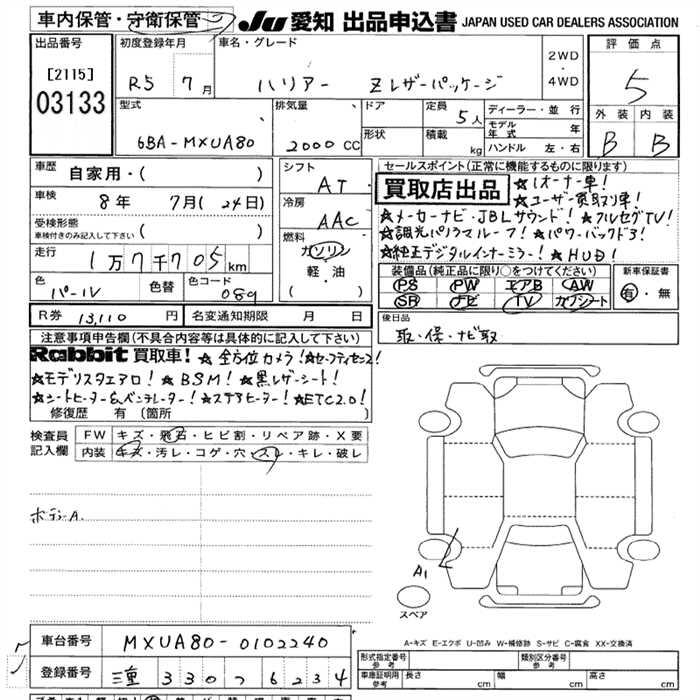 車内保管・守衛保管 JU 愛知 出品申込書 JAPAN USED CAR DEALERS ASSOCIATION
出品番号 [2115] 03133
初度登録年月 R5 7月
車名・グレード ハリアー Zレザーパッケージ
2WD・4WD
評価点 5
外装 B 内装 B
型式 6BA-MXUA80
排気量 2000 CC
ドア
形状
定員 5人
積載 kg
ディーラー・並行
モデル年式 年
ハンドル 左・右
車歴 自家用・( )
車検 8年 7月(24日)
受検形態 車検付きのみ記入して下さい ( )
走行 1万7千705km
色 パール 色替 色コード 089
シフト AT
冷房 AAC
燃料 ガソリン 軽・油 ( )
セールスポイント(正常に機能するものに限ります)
買取店出品 ★1オーナー車! ★ユーザー買取り車!
★メーカーナビ・JBLサウンド! ★フルセグTV!
★調光パノラマルーフ! ★パワーバックドア!
★純正デジタルインナーミラー! ★HUD!
装備品(純正品に限り○をつけてください)
PS PW エアB AW
SR ナビ TV カワシート
新車保証書 有・無
R券 13,110円 名変通知期限 月 日
後日品 取・保・ナビ取
注意事項申告欄(不具合内容等は具体的に記入して下さい)
Rabbit 買取車! ★全方位カメラ! ★セーフティセンス!
★モデリスタエアロ! ★BSM! ★黒レザーシート!
★シートヒーター&ベンチレーター! ★ステアヒーター! ★ETC2.0!
修復歴 有 〔箇所
検査員記入欄 FW キズ・飛石・ヒビ割・リペア跡・X要
内装 キズ・汚レ・コゲ・穴・スレ・キレ・破レ
ボデーA.
A1
スペア
A-キズ E-エクボ U-凹み W-補修跡 S-サビ C-腐食 XX-交換済
車台番号 MXUA80-0102240
登録番号 三重 330 6234
形式指定番号 参考 類別区分番号 参考
車庫証明用 参考 長さ cm 幅 cm 高さ cm